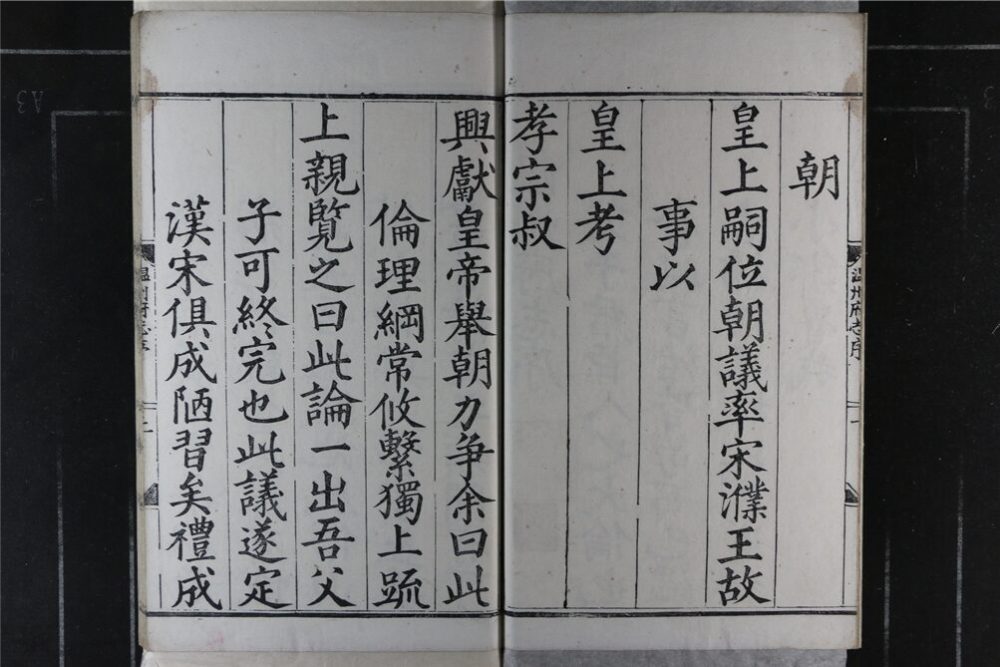 朝
皇上嗣位朝議率宋濮王故
事以
皇上考
孝宗叔
興獻皇帝舉朝力爭余曰此
倫理綱常攸繫獨上䟽
上親覽之曰此論一出吾父
子可終完也此議遂定
漢宋俱成陋習矣禮成
温州府志序
二